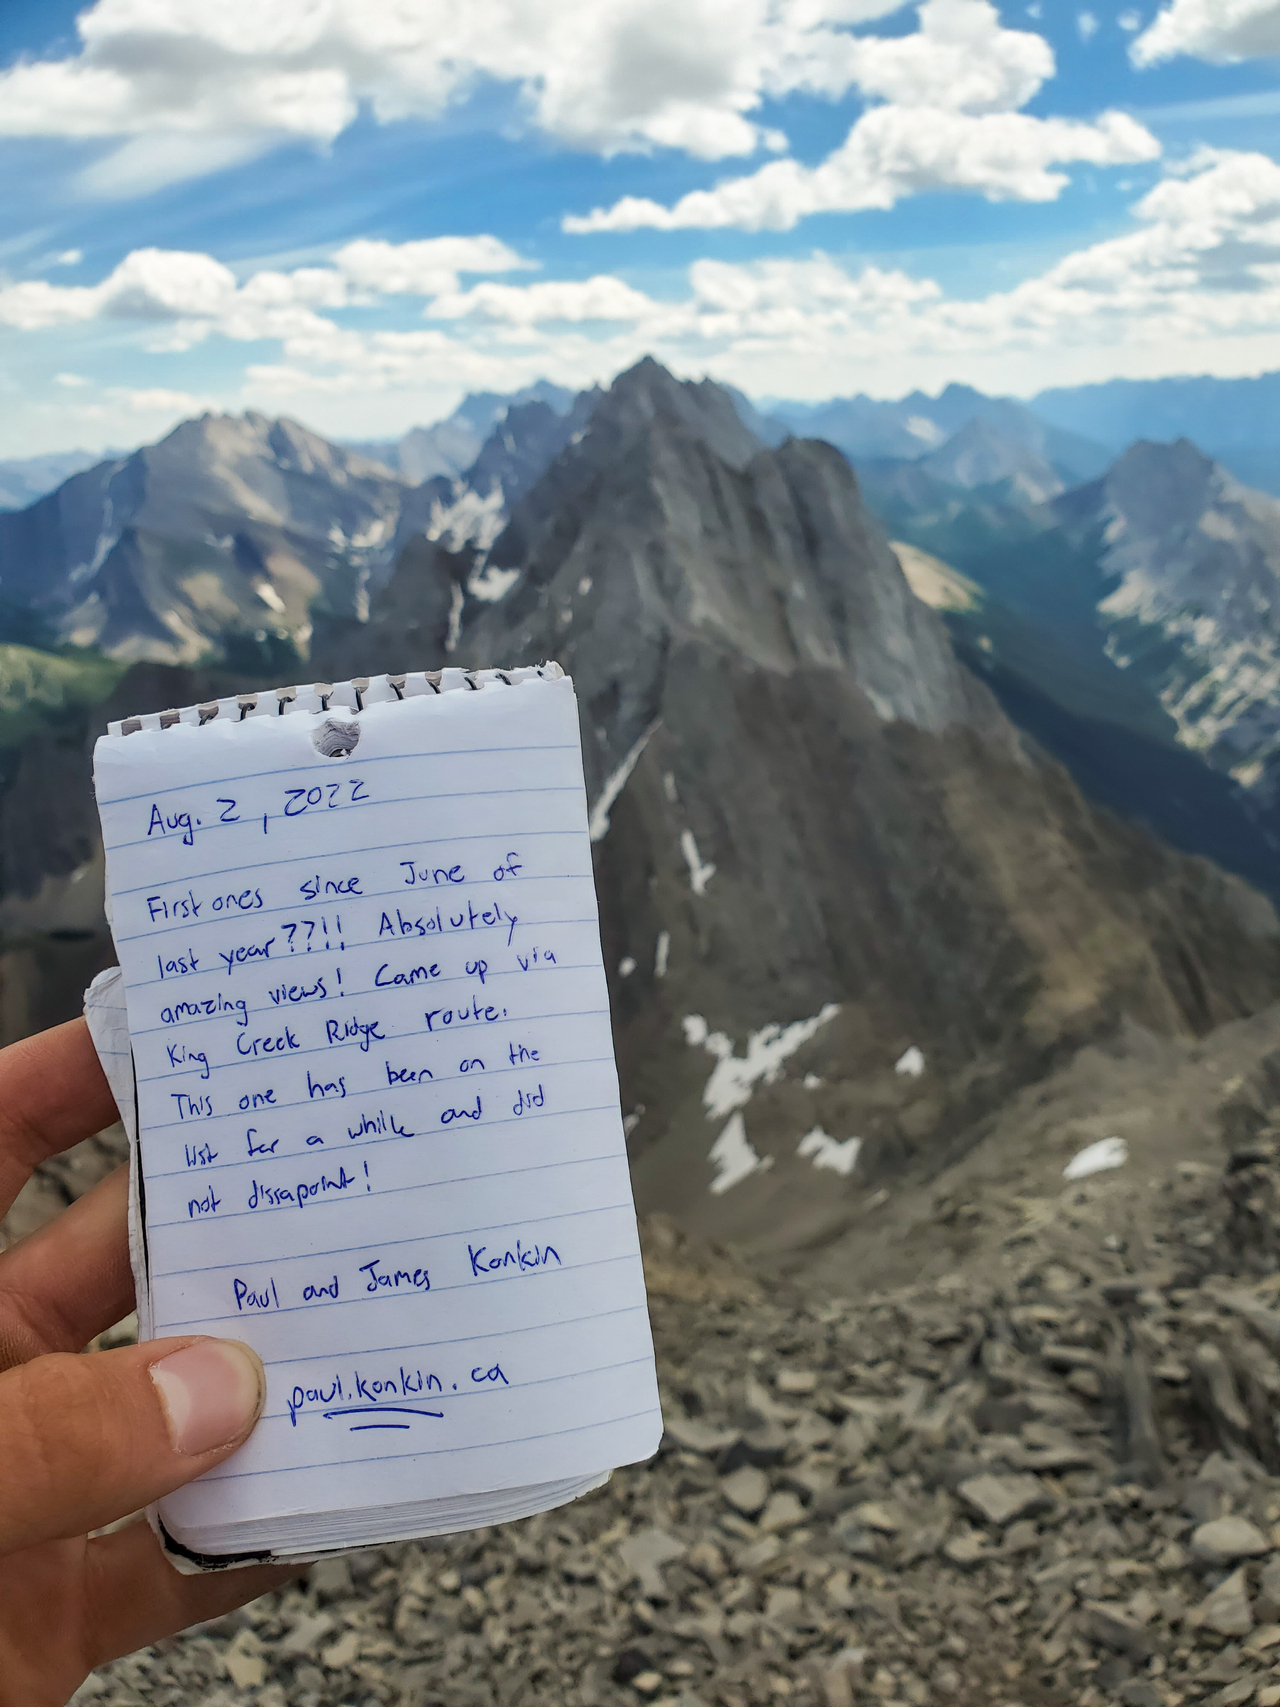 Aug. 2, 2022
First ones since June of
last year??!! Absolutely
amazing views! Came up via
King Creek Ridge route.
This one has been on the
list for a while and did
not dissapoint!
Paul and James Konkin
paul.konkin.ca